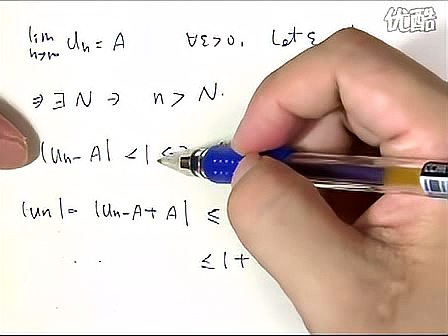 优酷
lim n→∞ Un = A ∀ε>0, Let ε
⇒ ∃ N ∋ n > N.
|Un - A| < 1
|Un| = |Un - A + A| ≤
.. ≤ 1 +